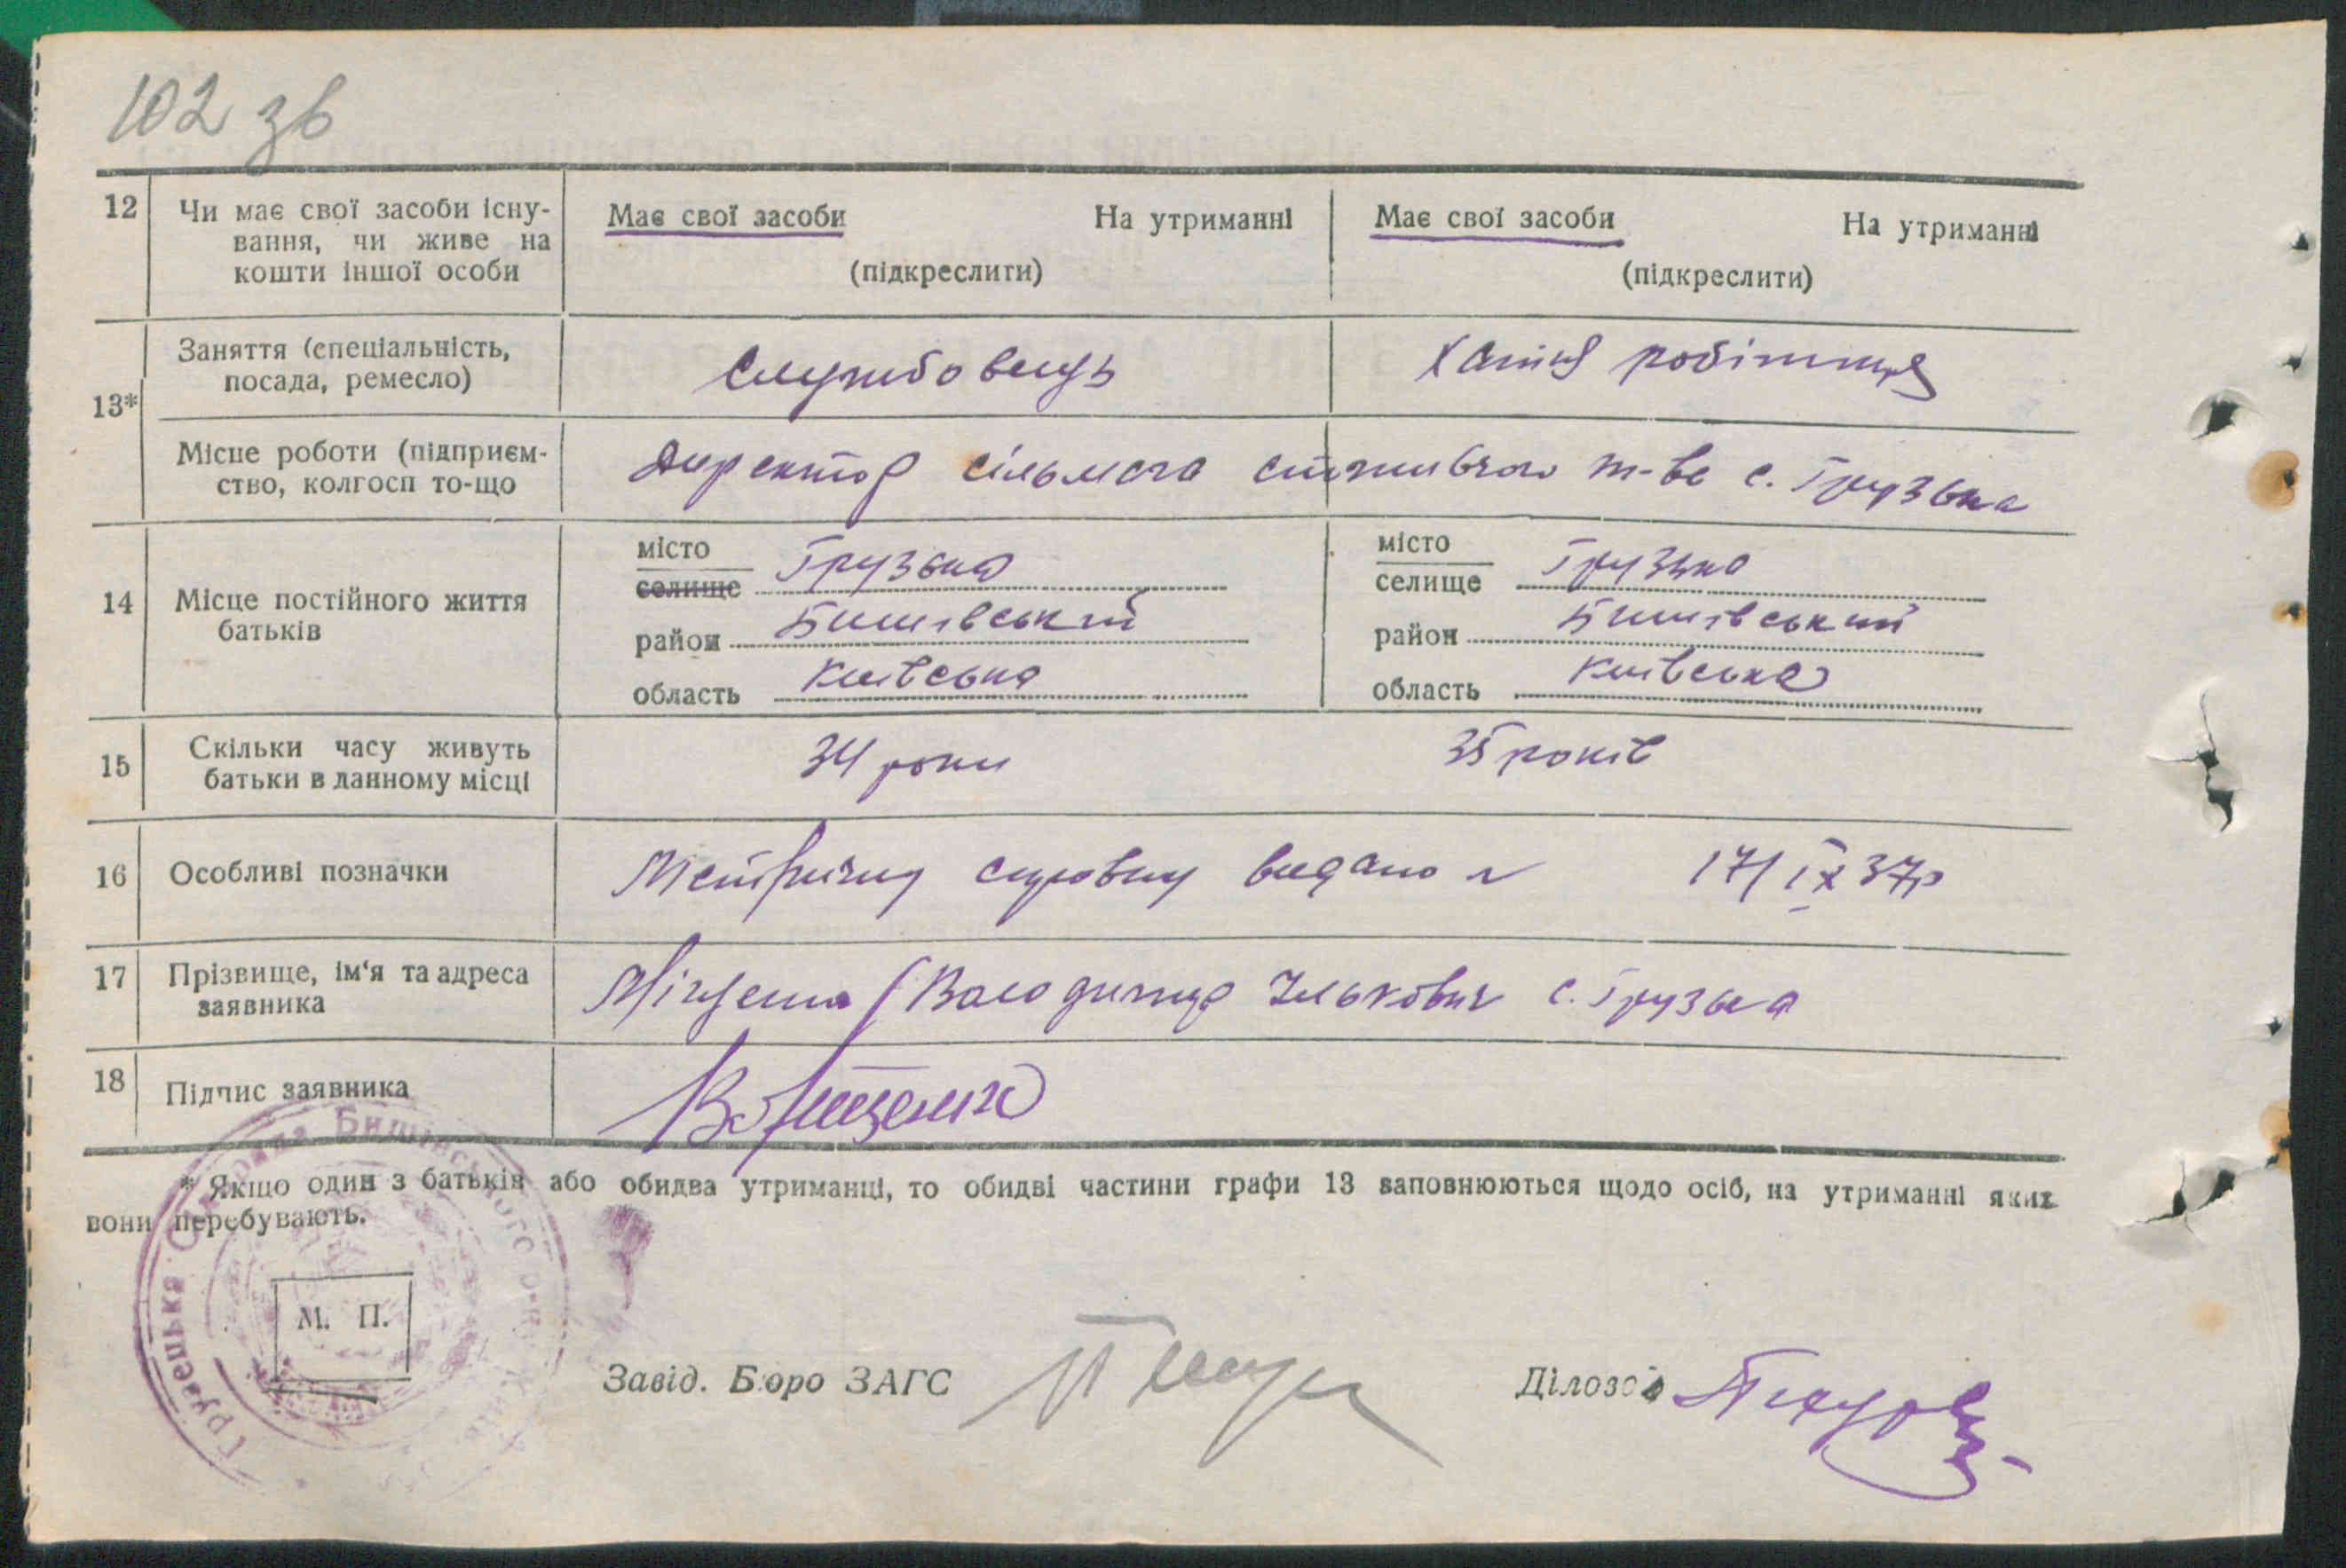 102 зв
12 Чи має свої засоби існу- Має свої засоби На утриманні Має свої засоби На утриманні
вання, чи живе на
кошти іншої особи (підкреслити) (підкреслити)
Заняття (спеціальність,
посада, ремесло) Службовець Хатня робітниця
13*
Місце роботи (підприєм-
ство, колгосп то-що Директор сільмага споживчого т-ва с. Грузька
місто Грузька місто Грузька
селище селище
14 Місце постійного життя
батьків район Бишівський район Бишівський
область Київська область Київська
15 Скільки часу живуть
батьки в данному місці 34 роки 35 років
16 Особливі позначки Метричну видано 17/IX 37р
17 Прізвище, ім'я та адреса
заявника Міщенко Володимир Ількович с. Грузька
18 Підпис заявника В. Міщенко
* Якщо один з батьків або обидва утриманці, то обидві частини графи 13 заповнюються щодо осіб, на утриманні яких
вони перебувають.
Грузецька Сільрада Бишівського р-ну Київ
М. П.
Завід. Бюро ЗАГС
Діловод